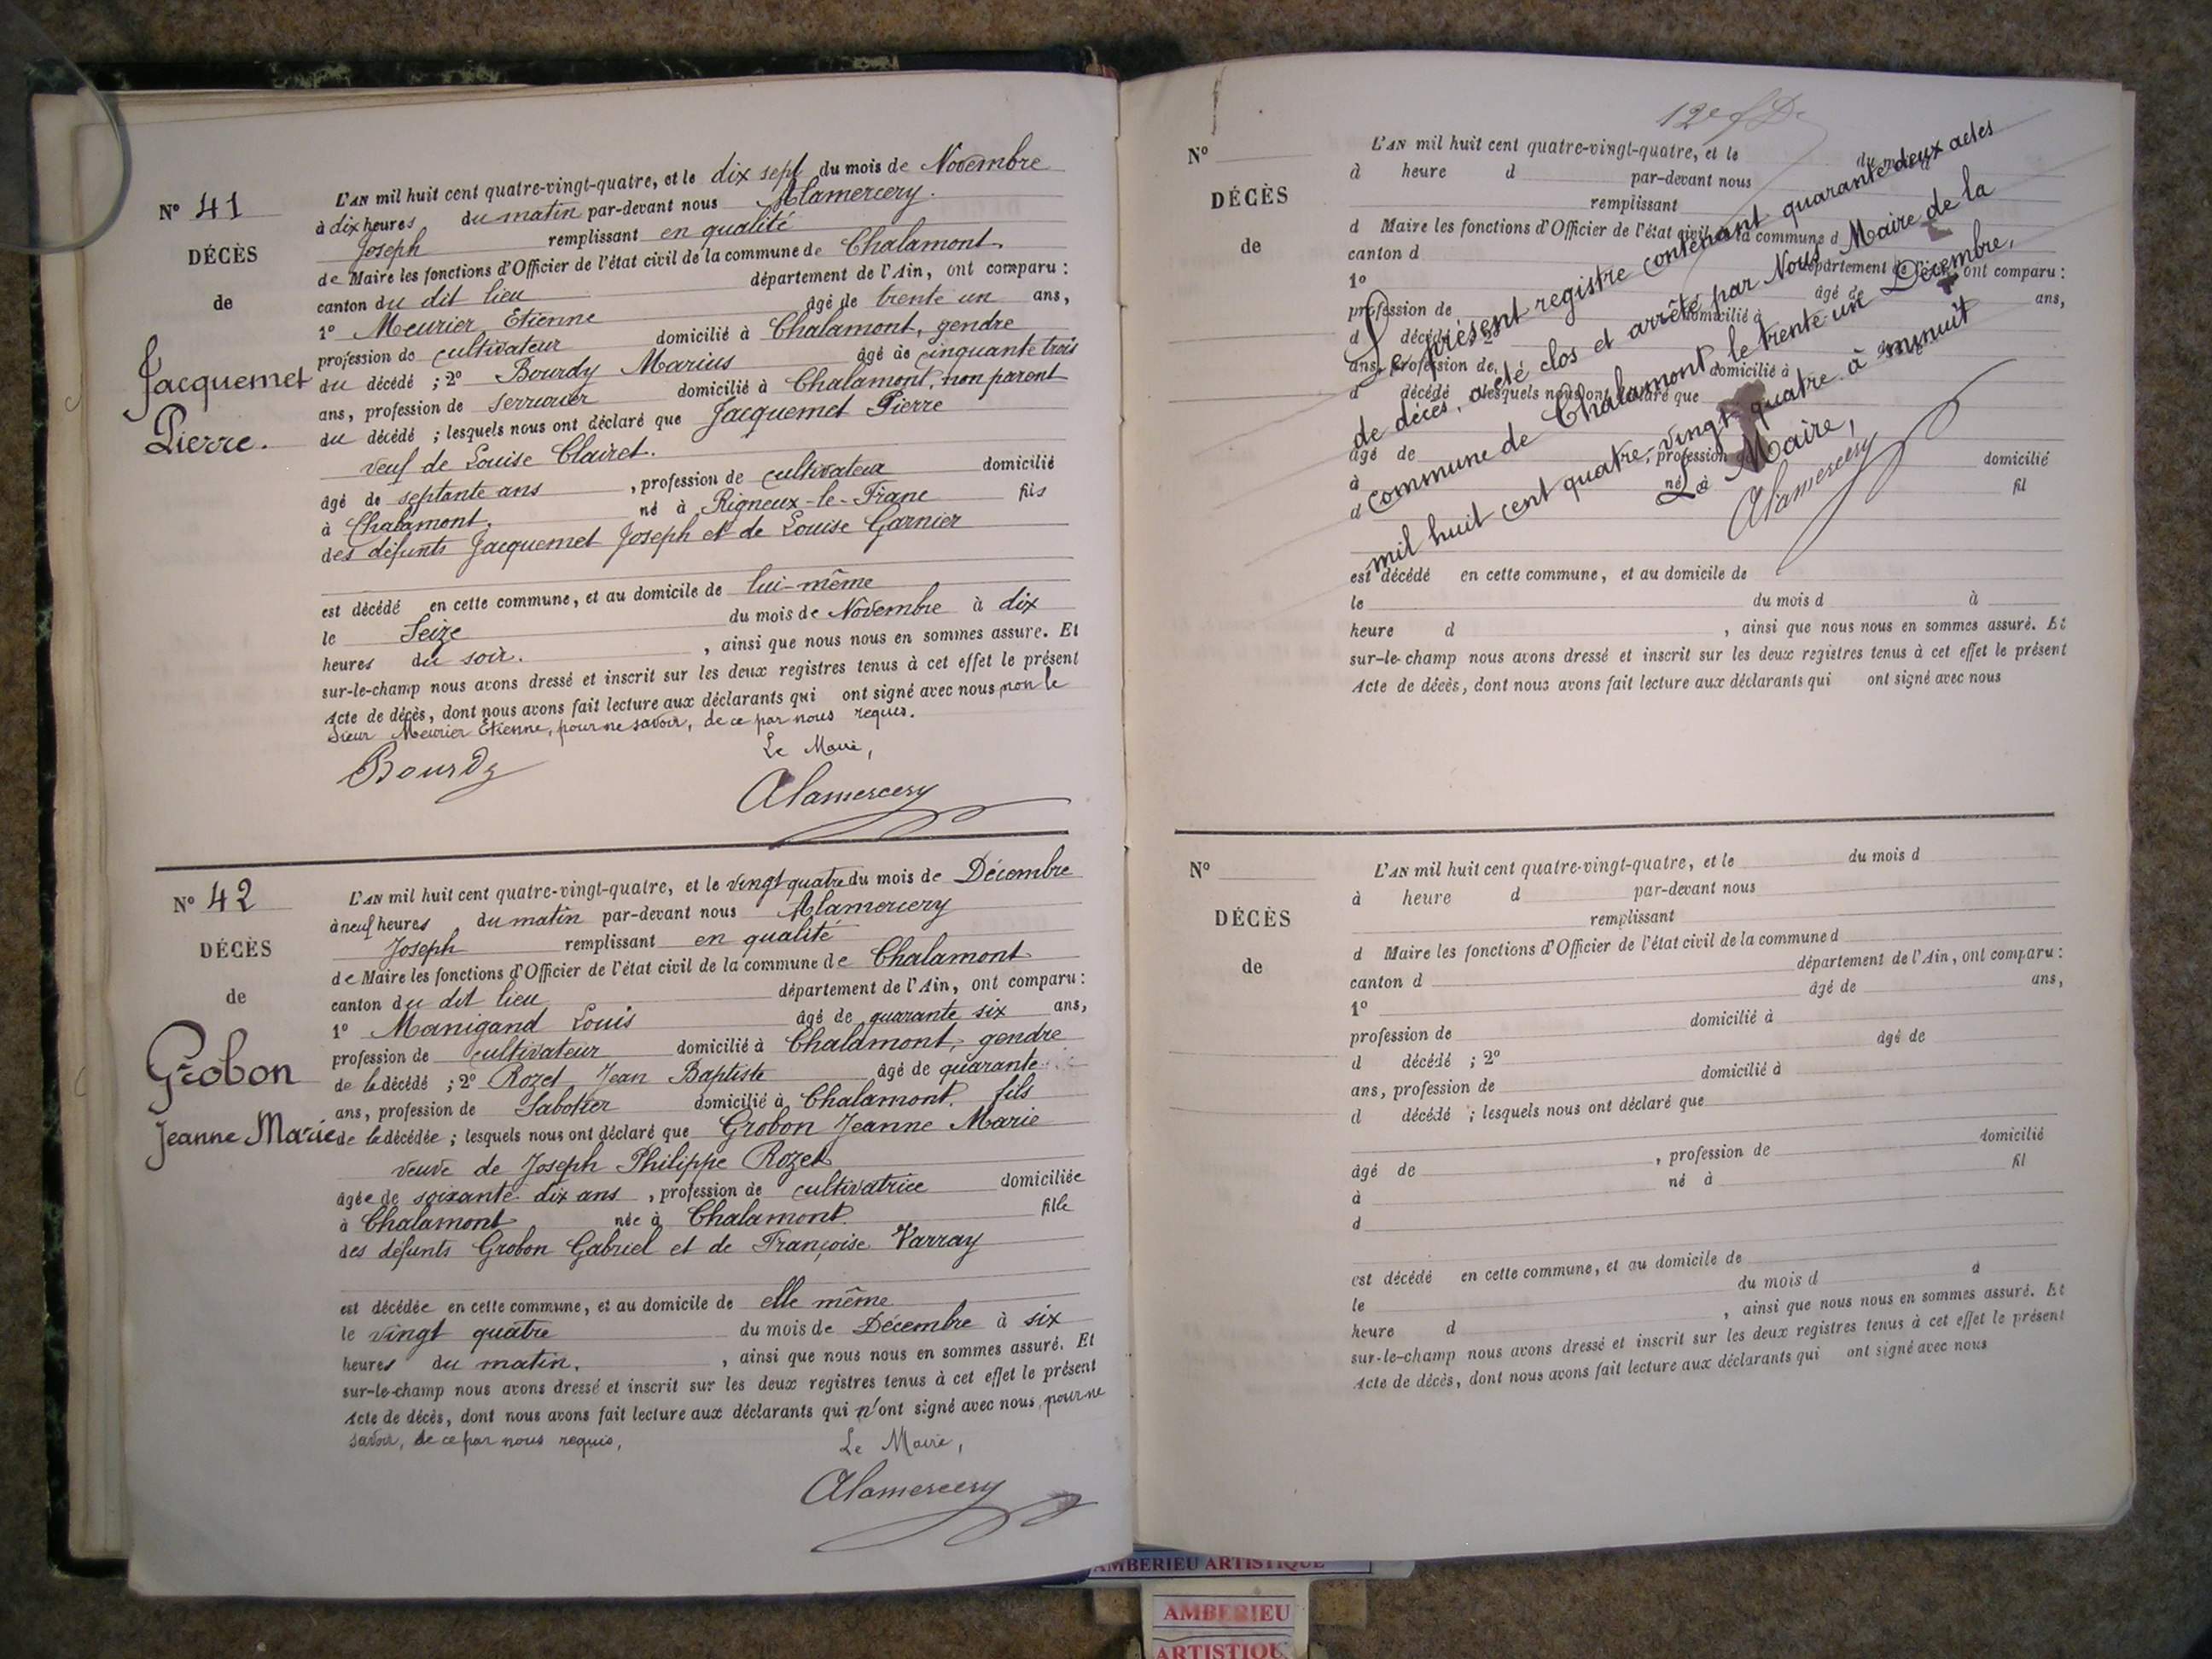 N° 41
DÉCÈS
de
Jacquemet
Pierre.
L'AN mil huit cent quatre-vingt-quatre, et le dix sept du mois de Novembre
à dix heures du matin par-devant nous Alamercery
Joseph remplissant en qualité
de Maire les fonctions d'Officier de l'état civil de la commune de Chalamont
canton du dit lieu département de l'Ain, ont comparu :
1° Meurier Etienne âgé de trente un ans,
profession de cultivateur domicilié à Chalamont, gendre
du décédé ; 2° Bourdy Marius âgé de cinquante trois
ans, profession de serrurier domicilié à Chalamont, non parent
du décédé ; lesquels nous ont déclaré que Jacquemet Pierre
veuf de Louise Clairet.
âgé de septante ans , profession de cultivateur domicilié
à Chalamont. né à Rigneux-le-Franc fils
des défunts Jacquemet Joseph et de Louise Garnier
est décédé en cette commune, et au domicile de lui-même
le Seize du mois de Novembre à dix
heures du soir. , ainsi que nous nous en sommes assuré. Et
sur-le-champ nous avons dressé et inscrit sur les deux registres tenus à cet effet le présent
Acte de décès, dont nous avons fait lecture aux déclarants qui ont signé avec nous non le
Sieur Meurier Etienne, pour ne savoir, de ce par nous requis.
Le Maire,
Bourdy
Alamercery
N° 42
DÉCÈS
de
Grobon
Jeanne Marie
L'AN mil huit cent quatre-vingt-quatre, et le vingt quatre du mois de Décembre
à neuf heures du matin par-devant nous Alamercery
Joseph remplissant en qualité
de Maire les fonctions d'Officier de l'état civil de la commune de Chalamont
canton du dit lieu département de l'Ain, ont comparu :
1° Manigand Louis âgé de quarante six ans,
profession de cultivateur domicilié à Chalamont, gendre
de la décédé ; 2° Rozet Jean Baptiste âgé de quarante
ans, profession de Sabotier domicilié à Chalamont. fils
de la décédée ; lesquels nous ont déclaré que Grobon Jeanne Marie
veuve de Joseph Philippe Rozet
âgée de soixante dix ans , profession de cultivatrice domiciliée
à Chalamont née à Chalamont. fille
des défunts Grobon Gabriel et de Françoise Varray
est décédée en cette commune, et au domicile de elle même
le vingt quatre du mois de Décembre à six
heures du matin. , ainsi que nous nous en sommes assuré. Et
sur-le-champ nous avons dressé et inscrit sur les deux registres tenus à cet effet le présent
Acte de décès, dont nous avons fait lecture aux déclarants qui n'ont signé avec nous, pour ne
savoir, de ce par nous requis,
Le Maire,
Alamercery
N°
DÉCÈS
de
L'AN mil huit cent quatre-vingt-quatre, et le du mois d
à heure d par-devant nous
remplissant
d Maire les fonctions d'Officier de l'état civil de la commune d
canton d département de l'Ain, ont comparu :
1° âgé de ans,
profession de domicilié à
d décédé ; 2° âgé de
ans, profession de domicilié à
d décédé ; lesquels nous ont déclaré que
âgé de , profession de domicilié
à né à fil
d
Le présent registre contenant quarante deux actes
de décès, a été clos et arrêté par Nous Maire de la
commune de Chalamont, le trente-un Décembre,
mil huit cent quatre-vingt-quatre à minuit
Le Maire,
Alamercery
est décédé en cette commune, et au domicile de
le du mois d à
heure d , ainsi que nous nous en sommes assuré. Et
sur-le-champ nous avons dressé et inscrit sur les deux registres tenus à cet effet le présent
Acte de décès, dont nous avons fait lecture aux déclarants qui ont signé avec nous
N°
DÉCÈS
de
L'AN mil huit cent quatre-vingt-quatre, et le du mois d
à heure d par-devant nous
remplissant
d Maire les fonctions d'Officier de l'état civil de la commune d
canton d département de l'Ain, ont comparu :
1° âgé de ans,
profession de domicilié à
d décédé ; 2° âgé de
ans, profession de domicilié à
d décédé ; lesquels nous ont déclaré que
âgé de , profession de domicilié
à né à fil
d
est décédé en cette commune, et au domicile de
le du mois d à
heure d , ainsi que nous nous en sommes assuré. Et
sur-le-champ nous avons dressé et inscrit sur les deux registres tenus à cet effet le présent
Acte de décès, dont nous avons fait lecture aux déclarants qui ont signé avec nous
AMBERIEU ARTISTIQUE
AMBERIEU
ARTISTIQU